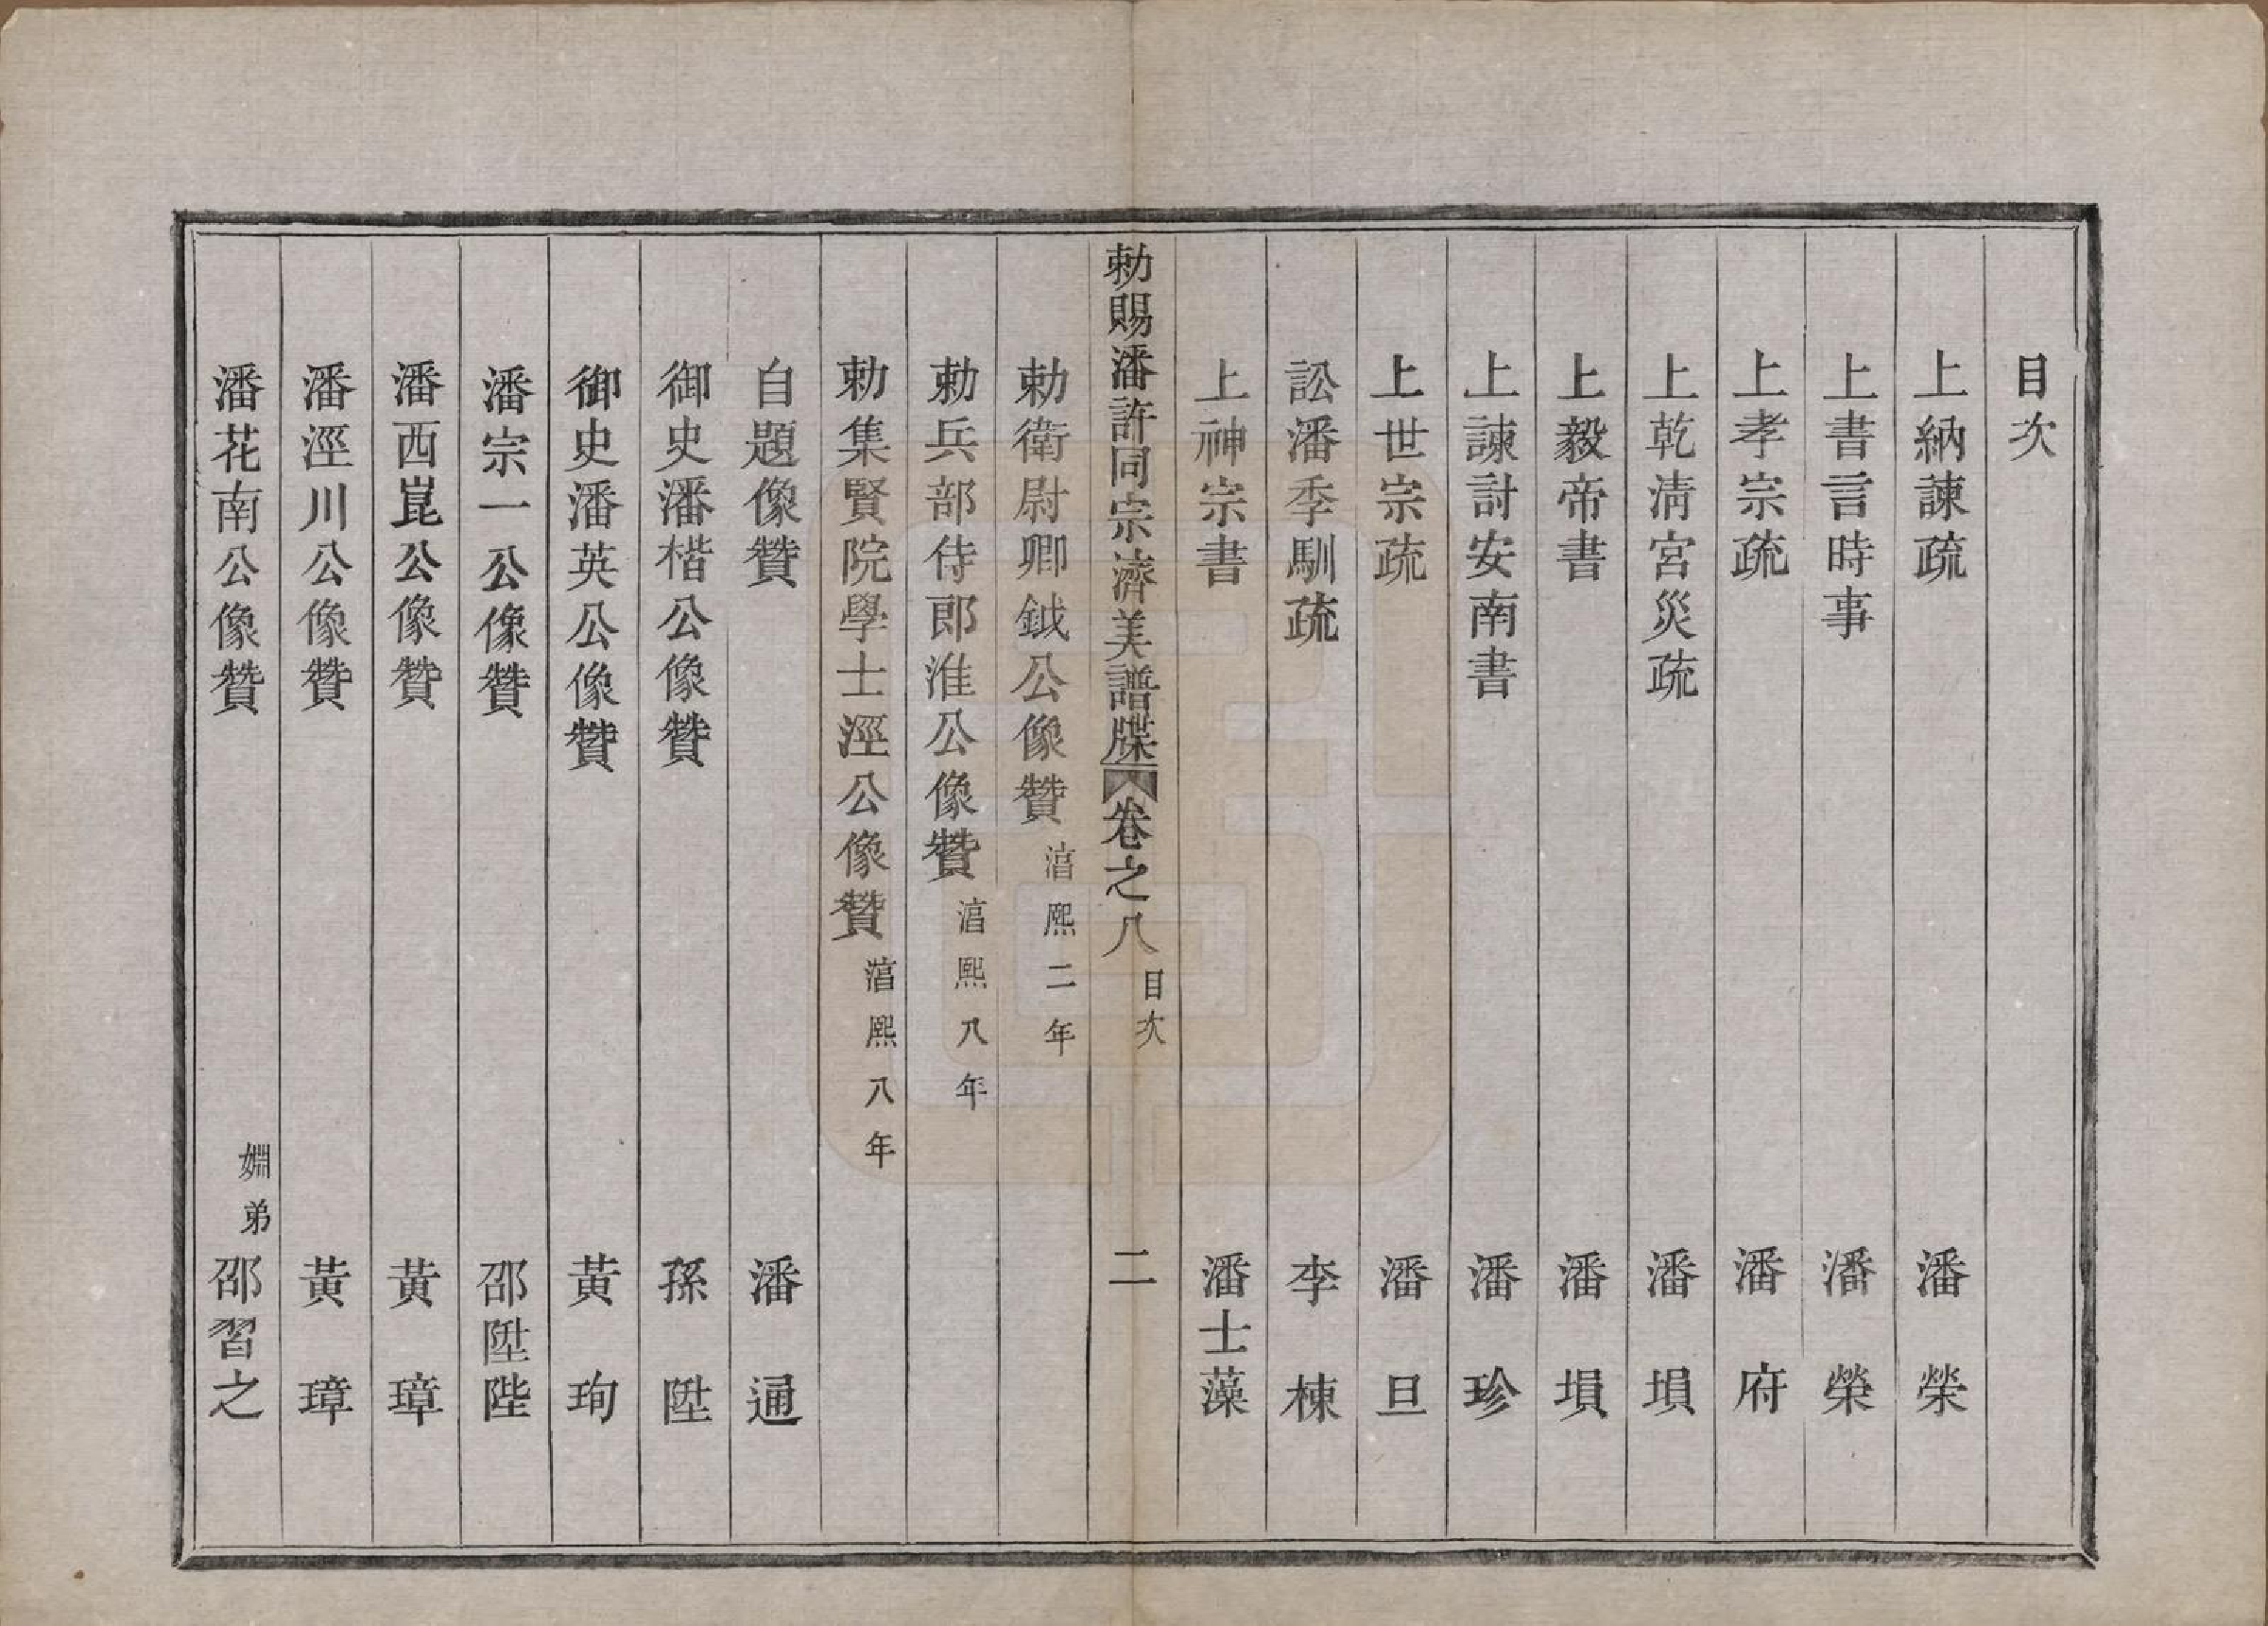 目次
上納諫疏 潘榮
上書言時事 潘榮
上孝宗疏 潘府
上乾淸宮災疏 潘塤
上毅帝書 潘塤
上諫討安南書 潘珍
上世宗疏 潘旦
訟潘季馴疏 李棟
上神宗書 潘士藻
勅賜潘許同宗濟美譜牒 卷之八 目次 二
勅衛尉卿鉞公像贊 淳熙二年
勅兵部侍郎淮公像贊 淳熙八年
勅集賢院學士涇公像贊 淳熙八年
自題像贊 潘通
御史潘楷公像贊 孫陞
御史潘英公像贊 黃珣
潘宗一公像贊 邵陞陛
潘西崑公像贊 黃璋
潘涇川公像贊 黃璋
潘花南公像贊 姻弟邵習之